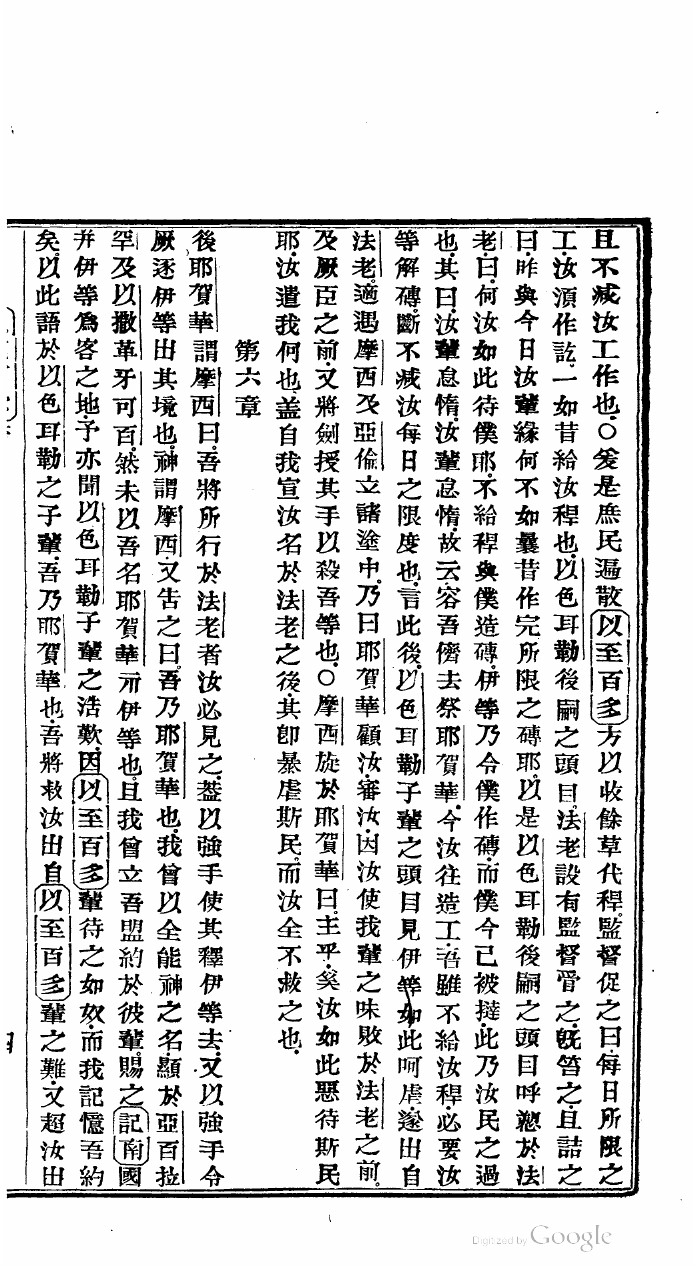 且不减汝工作也○爰是庶民遍散以至百多方以收餘草代稈監督促之曰每日所限之
工汝須作訖一如昔給汝稈也以色耳勒後嗣之頭目法老設有監督管之旣笞之且詰之
曰昨與今日汝輩緣何不如曩昔作完所限之磚耶以是以色耳勒後嗣之頭目呼愬於法
老曰何汝如此待僕耶不給稈與僕造磚伊等乃令僕作磚而僕今已被撻此乃汝民之過
也其曰汝輩怠惰汝輩怠惰故云容吾儕去祭耶賀華今汝往造工吾雖不給汝稈必要汝
等解磚斷不减汝每日之限度也言此後以色耳勒子輩之頭目見伊等如此呵虐遂出自
法老適遇摩西及亞倫立諸塗中乃曰耶賀華顧汝審汝因汝使我輩之味敗於法老之前
及厥臣之前又將劍授其手以殺吾等也○摩西旋於耶賀華曰主乎奚汝如此惡待斯民
耶汝遣我何也盖自我宣汝名於法老之後其卽暴虐斯民而汝全不救之也
第六章
後耶賀華謂摩西曰吾將所行於法老者汝必見之葢以強手使其釋伊等去又以強手令
厥逐伊等出其境也神謂摩西又告之曰吾乃耶賀華也我曾以全能神之名顯於亞百拉
罕及以撒革牙可百然未以吾名耶賀華示伊等也且我曾立吾盟約於彼輩賜之記南國
幷伊等爲客之地予亦聞以色耳勒子輩之浩歎因以至百多輩待之如奴而我記憶吾約
矣以此語於以色耳勒之子輩吾乃耶賀華也吾將救汝出自以至百多輩之難又超汝出
Digitized by Google